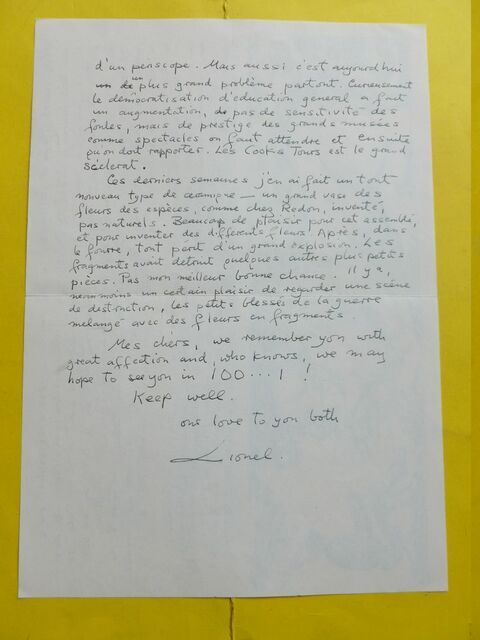 d'un periscope. Mais aussi c'est aujourdhui
un plus grand problème partout. Curieusement
le démocratisation d'éducation general a fait
un augmentation, de pas de sensitivité des
foules, mais de prestige des grands musées
comme spectacles on faut attendre et ensuite
qu'on doit rapporter. Les Cooks Tours est le grand
scélerat.
Ces derniers semaines j'en ai fait un tout
nouveau type de ceramique — un grand vase des
fleurs des espèces, comme chez Redon, inventé,
pas naturels. Beaucoup de plaisir pour cet assemblé,
et pour inventer des différents fleurs. Après, dans
le fourre, tout part d'un grand explosion. Les
fragments avait detruit quelques autres plus petits
pièces. Pas mon meilleur bonne chance. Il y a,
neanmoins un certain plaisir de regarder une scène
de distruction, les petits blessés de la guerre
melangé avec des fleurs en fragments.
Mes chers, we remember you with
great affection and, who knows, we may
hope to see you in 100...1 !
Keep well.
our love to you both
Lionel.